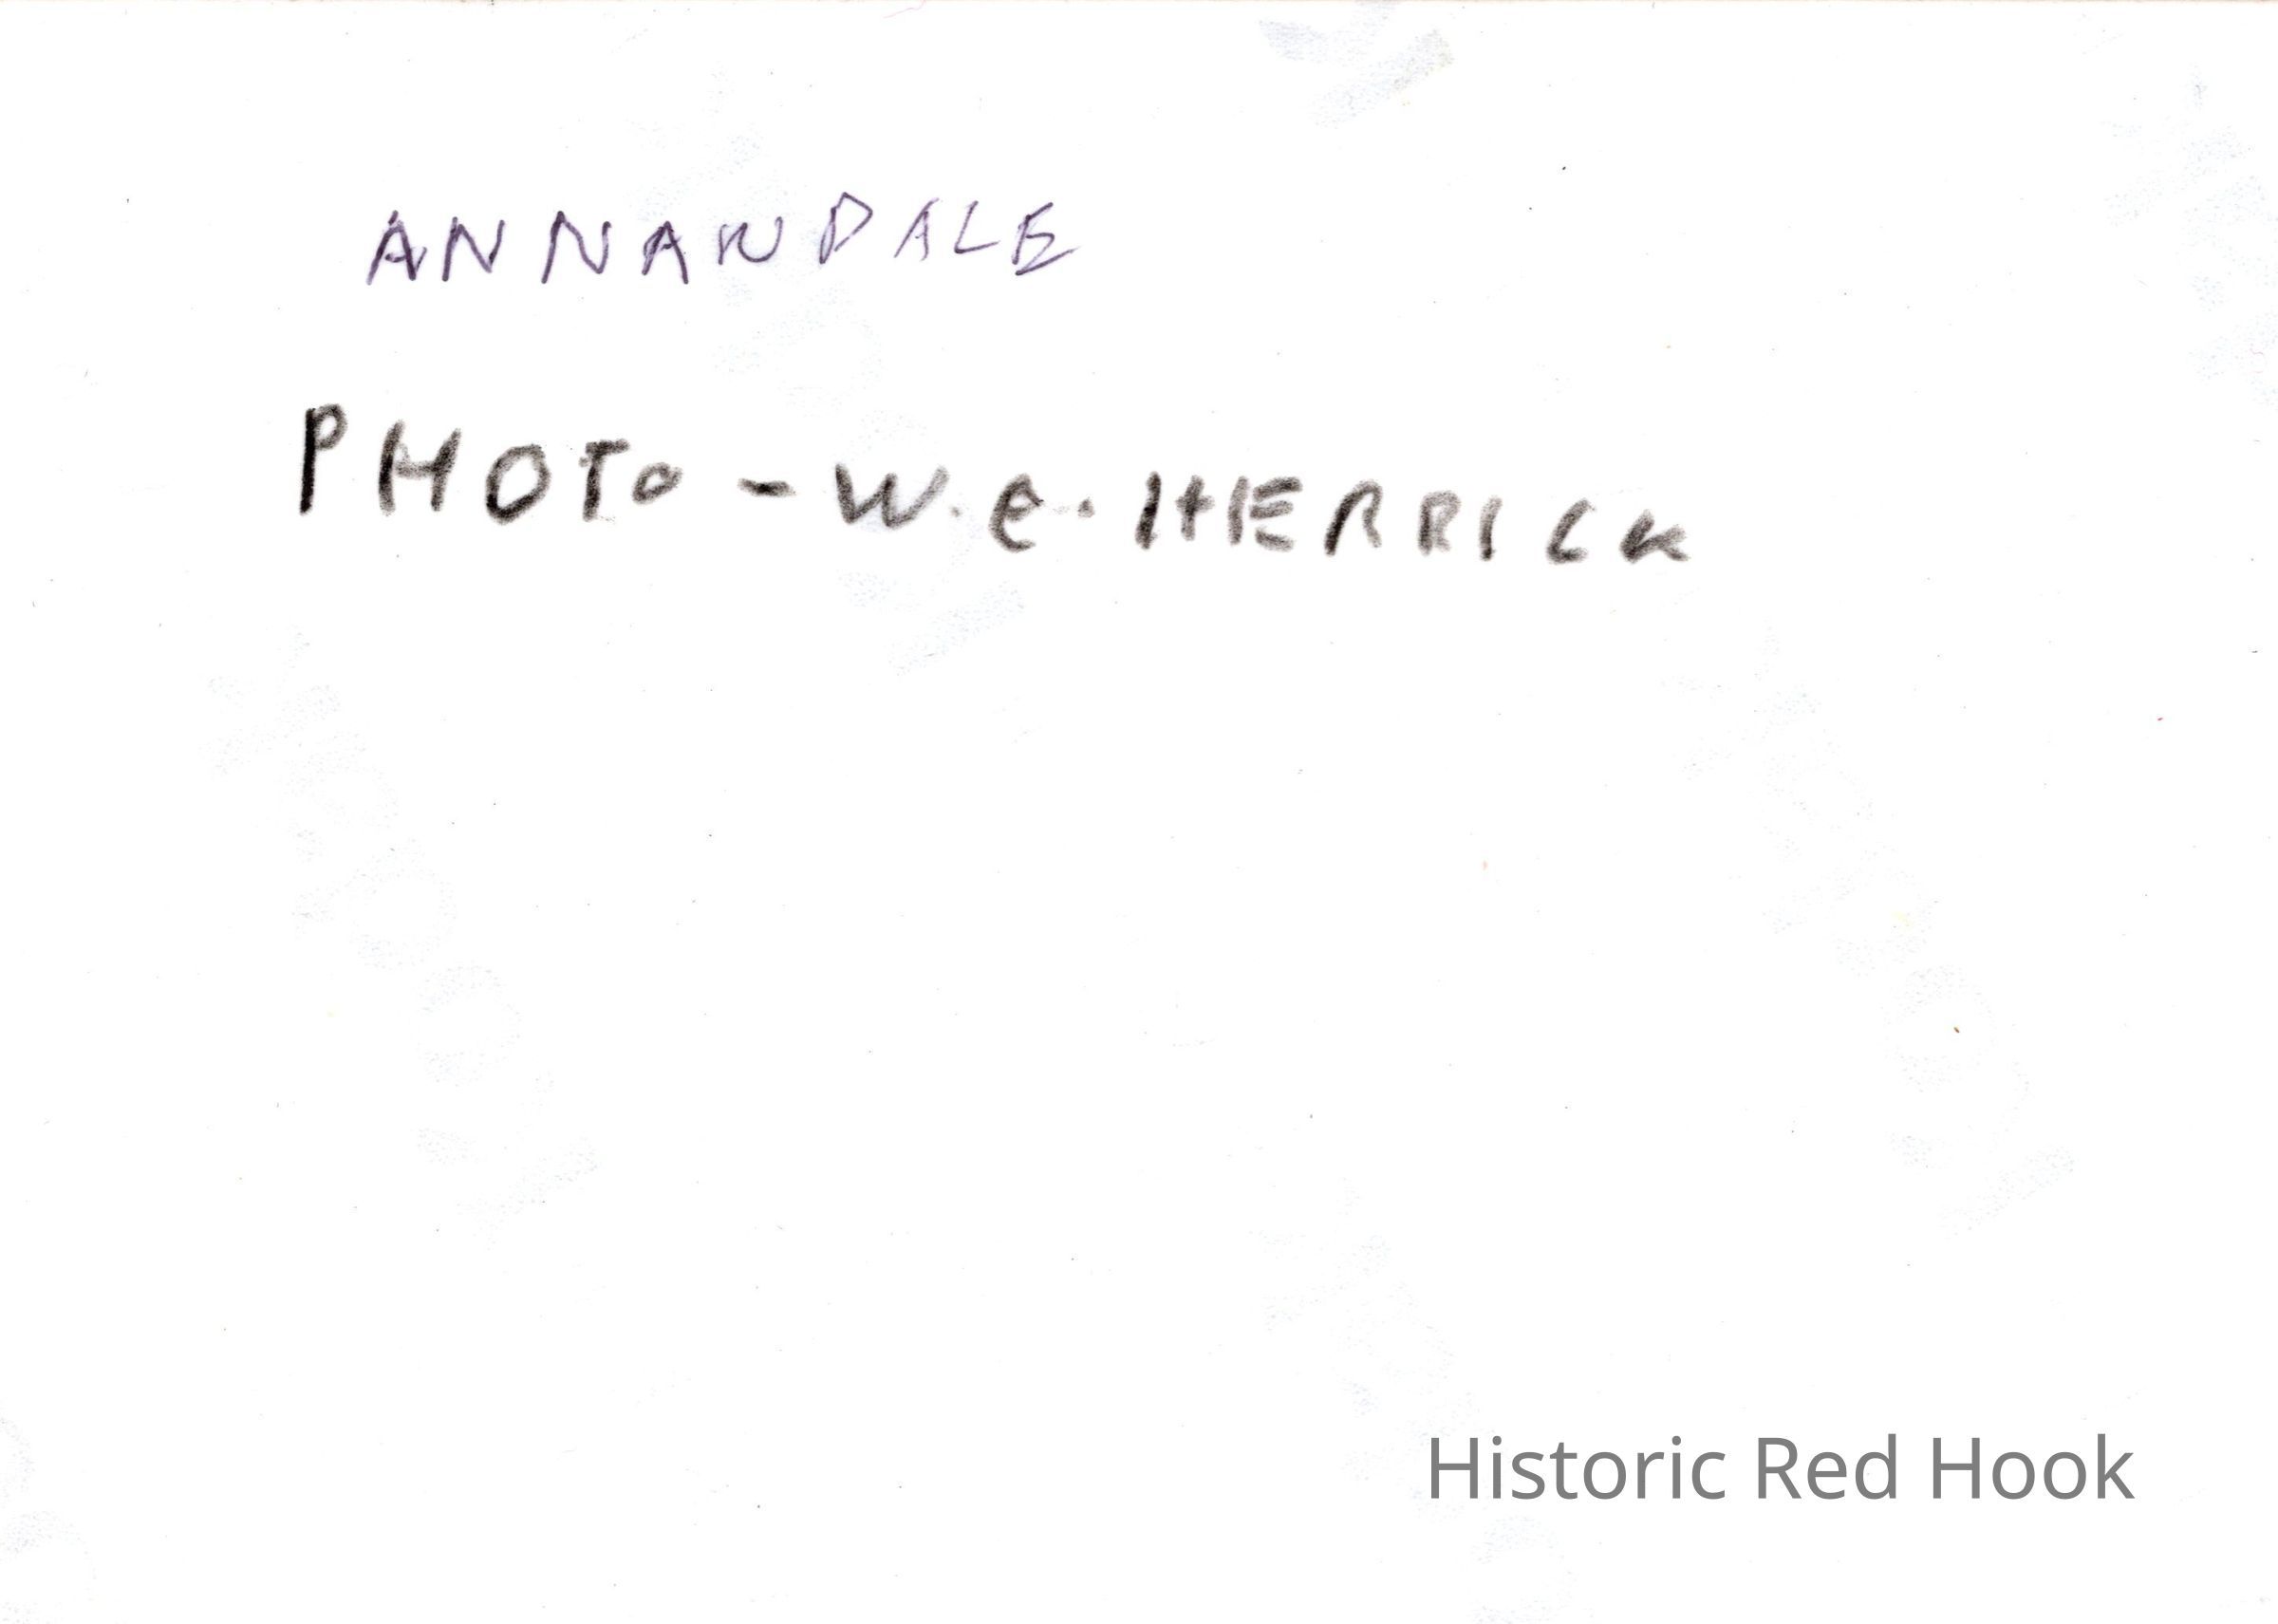 ANNANDALE
PHOTO - W. E. HERRICK
Historic Red Hook